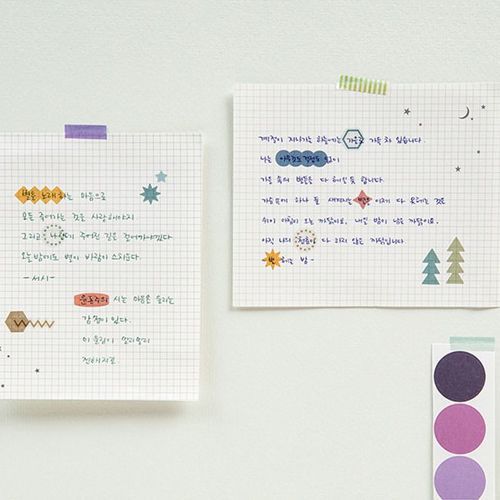 별을 노래하는 마음으로
모든 죽어가는 것을 사랑해야지
그리고 나한테 주어진 길을 걸어가야겠다.
오늘밤에도 별이 바람에 스치운다.
-서시-
윤동주의 시는 마음을 울리는
감성이 있다.
이 울림이 오래오래
전해지길.
계절이 지나가는 하늘에는 가을로 가득 차 있습니다.
나는 걱정도 없이
가을 속의 별들을 다 헤일 듯 합니다.
가슴속에 하나 둘 새겨지는 별을 이제 다 못헤는 것은
쉬이 아침이 오는 까닭이요, 내일 밤이 남은 까닭이요,
아직 나의 청춘이 다 하지 않은 까닭입니다.
-별 헤는 밤-